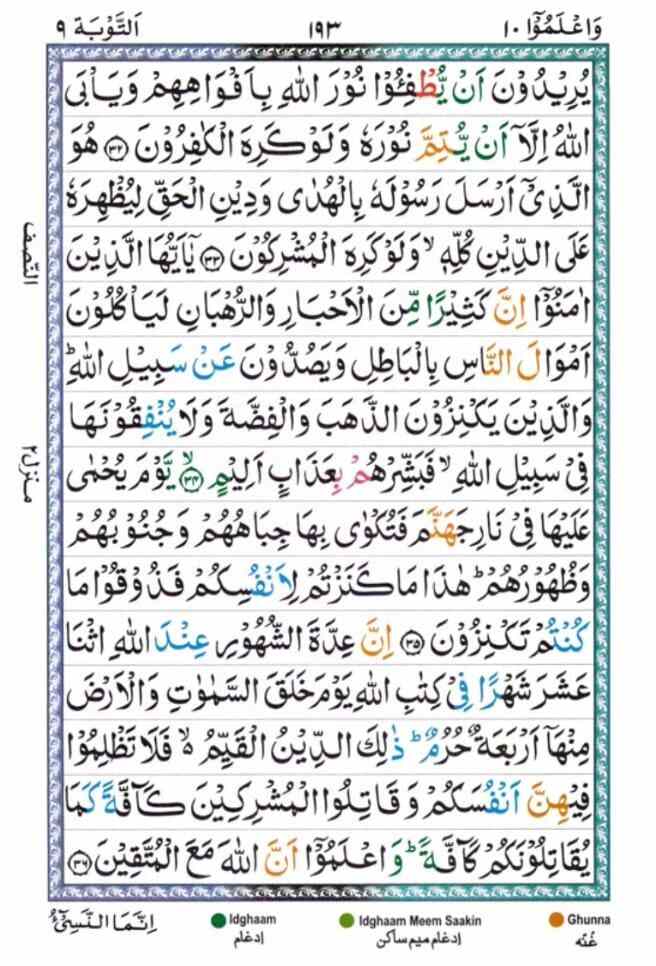 وَاعْلَمُوْٓا ١٠ ١٩٣ اَلتَّوْبَة ٩
يُرِيْدُوْنَ اَنْ يُّطْفِـُٔوْا نُوْرَ اللّٰهِ بِاَفْوَاهِهِمْ وَيَاْبَى
اللّٰهُ اِلَّاۤ اَنْ يُّتِمَّ نُوْرَهٗ وَلَوْ كَرِهَ الْكٰفِرُوْنَ ۝٣٢ هُوَ
الَّذِيْۤ اَرْسَلَ رَسُوْلَهٗ بِالْهُدٰى وَدِيْنِ الْحَقِّ لِيُظْهِرَهٗ
عَلَى الدِّيْنِ كُلِّهٖ ۙ وَلَوْ كَرِهَ الْمُشْرِكُوْنَ ۝٣٣ يٰۤاَيُّهَا الَّذِيْنَ
اٰمَنُوْۤا اِنَّ كَثِيْرًا مِّنَ الْاَحْبَارِ وَالرُّهْبَانِ لَيَاْكُلُوْنَ
اَمْوَالَ النَّاسِ بِالْبَاطِلِ وَيَصُدُّوْنَ عَنْ سَبِيْلِ اللّٰهِ ؕ
وَالَّذِيْنَ يَكْنِزُوْنَ الذَّهَبَ وَالْفِضَّةَ وَلَا يُنْفِقُوْنَهَا
فِيْ سَبِيْلِ اللّٰهِ ۙ فَبَشِّرْهُمْ بِعَذَابٍ اَلِيْمٍ ۝٣٤ ۙ يَّوْمَ يُحْمٰى
عَلَيْهَا فِيْ نَارِ جَهَنَّمَ فَتُكْوٰى بِهَا جِبَاهُهُمْ وَجُنُوْبُهُمْ
وَظُهُوْرُهُمْ ؕ هٰذَا مَا كَنَزْتُمْ لِاَنْفُسِكُمْ فَذُوْقُوْا مَا
كُنْتُمْ تَكْنِزُوْنَ ۝٣٥ اِنَّ عِدَّةَ الشُّهُوْرِ عِنْدَ اللّٰهِ اثْنَا
عَشَرَ شَهْرًا فِيْ كِتٰبِ اللّٰهِ يَوْمَ خَلَقَ السَّمٰوٰتِ وَالْاَرْضَ
مِنْهَاۤ اَرْبَعَةٌ حُرُمٌ ؕ ذٰلِكَ الدِّيْنُ الْقَيِّمُ ۙ فَلَا تَظْلِمُوْا
فِيْهِنَّ اَنْفُسَكُمْ وَقَاتِلُوا الْمُشْرِكِيْنَ كَآفَّةً كَمَا
يُقَاتِلُوْنَكُمْ كَآفَّةً ؕ وَاعْلَمُوْۤا اَنَّ اللّٰهَ مَعَ الْمُتَّقِيْنَ ۝٣٦
النّصف
منزل٢
اِنَّمَا النَّسِيْٓءُ
Idghaam
ادغام
Idghaam Meem Saakin
ادغام میم ساکن
Ghunna
غنّه